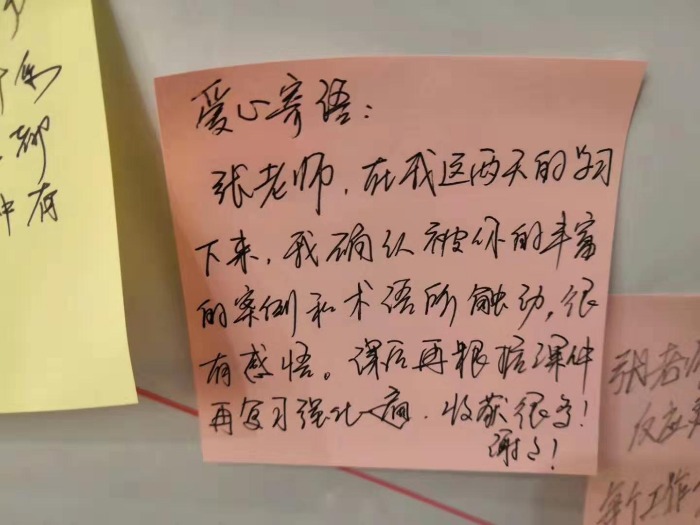 爱心寄语：
张老师，在我这两天的学习
下来，我确认被你的丰富
的案例和术语所触动，很
有感悟。课后再根据课件
再复习强化一遍．收获很多！
谢谢！
张老师
反应
工作